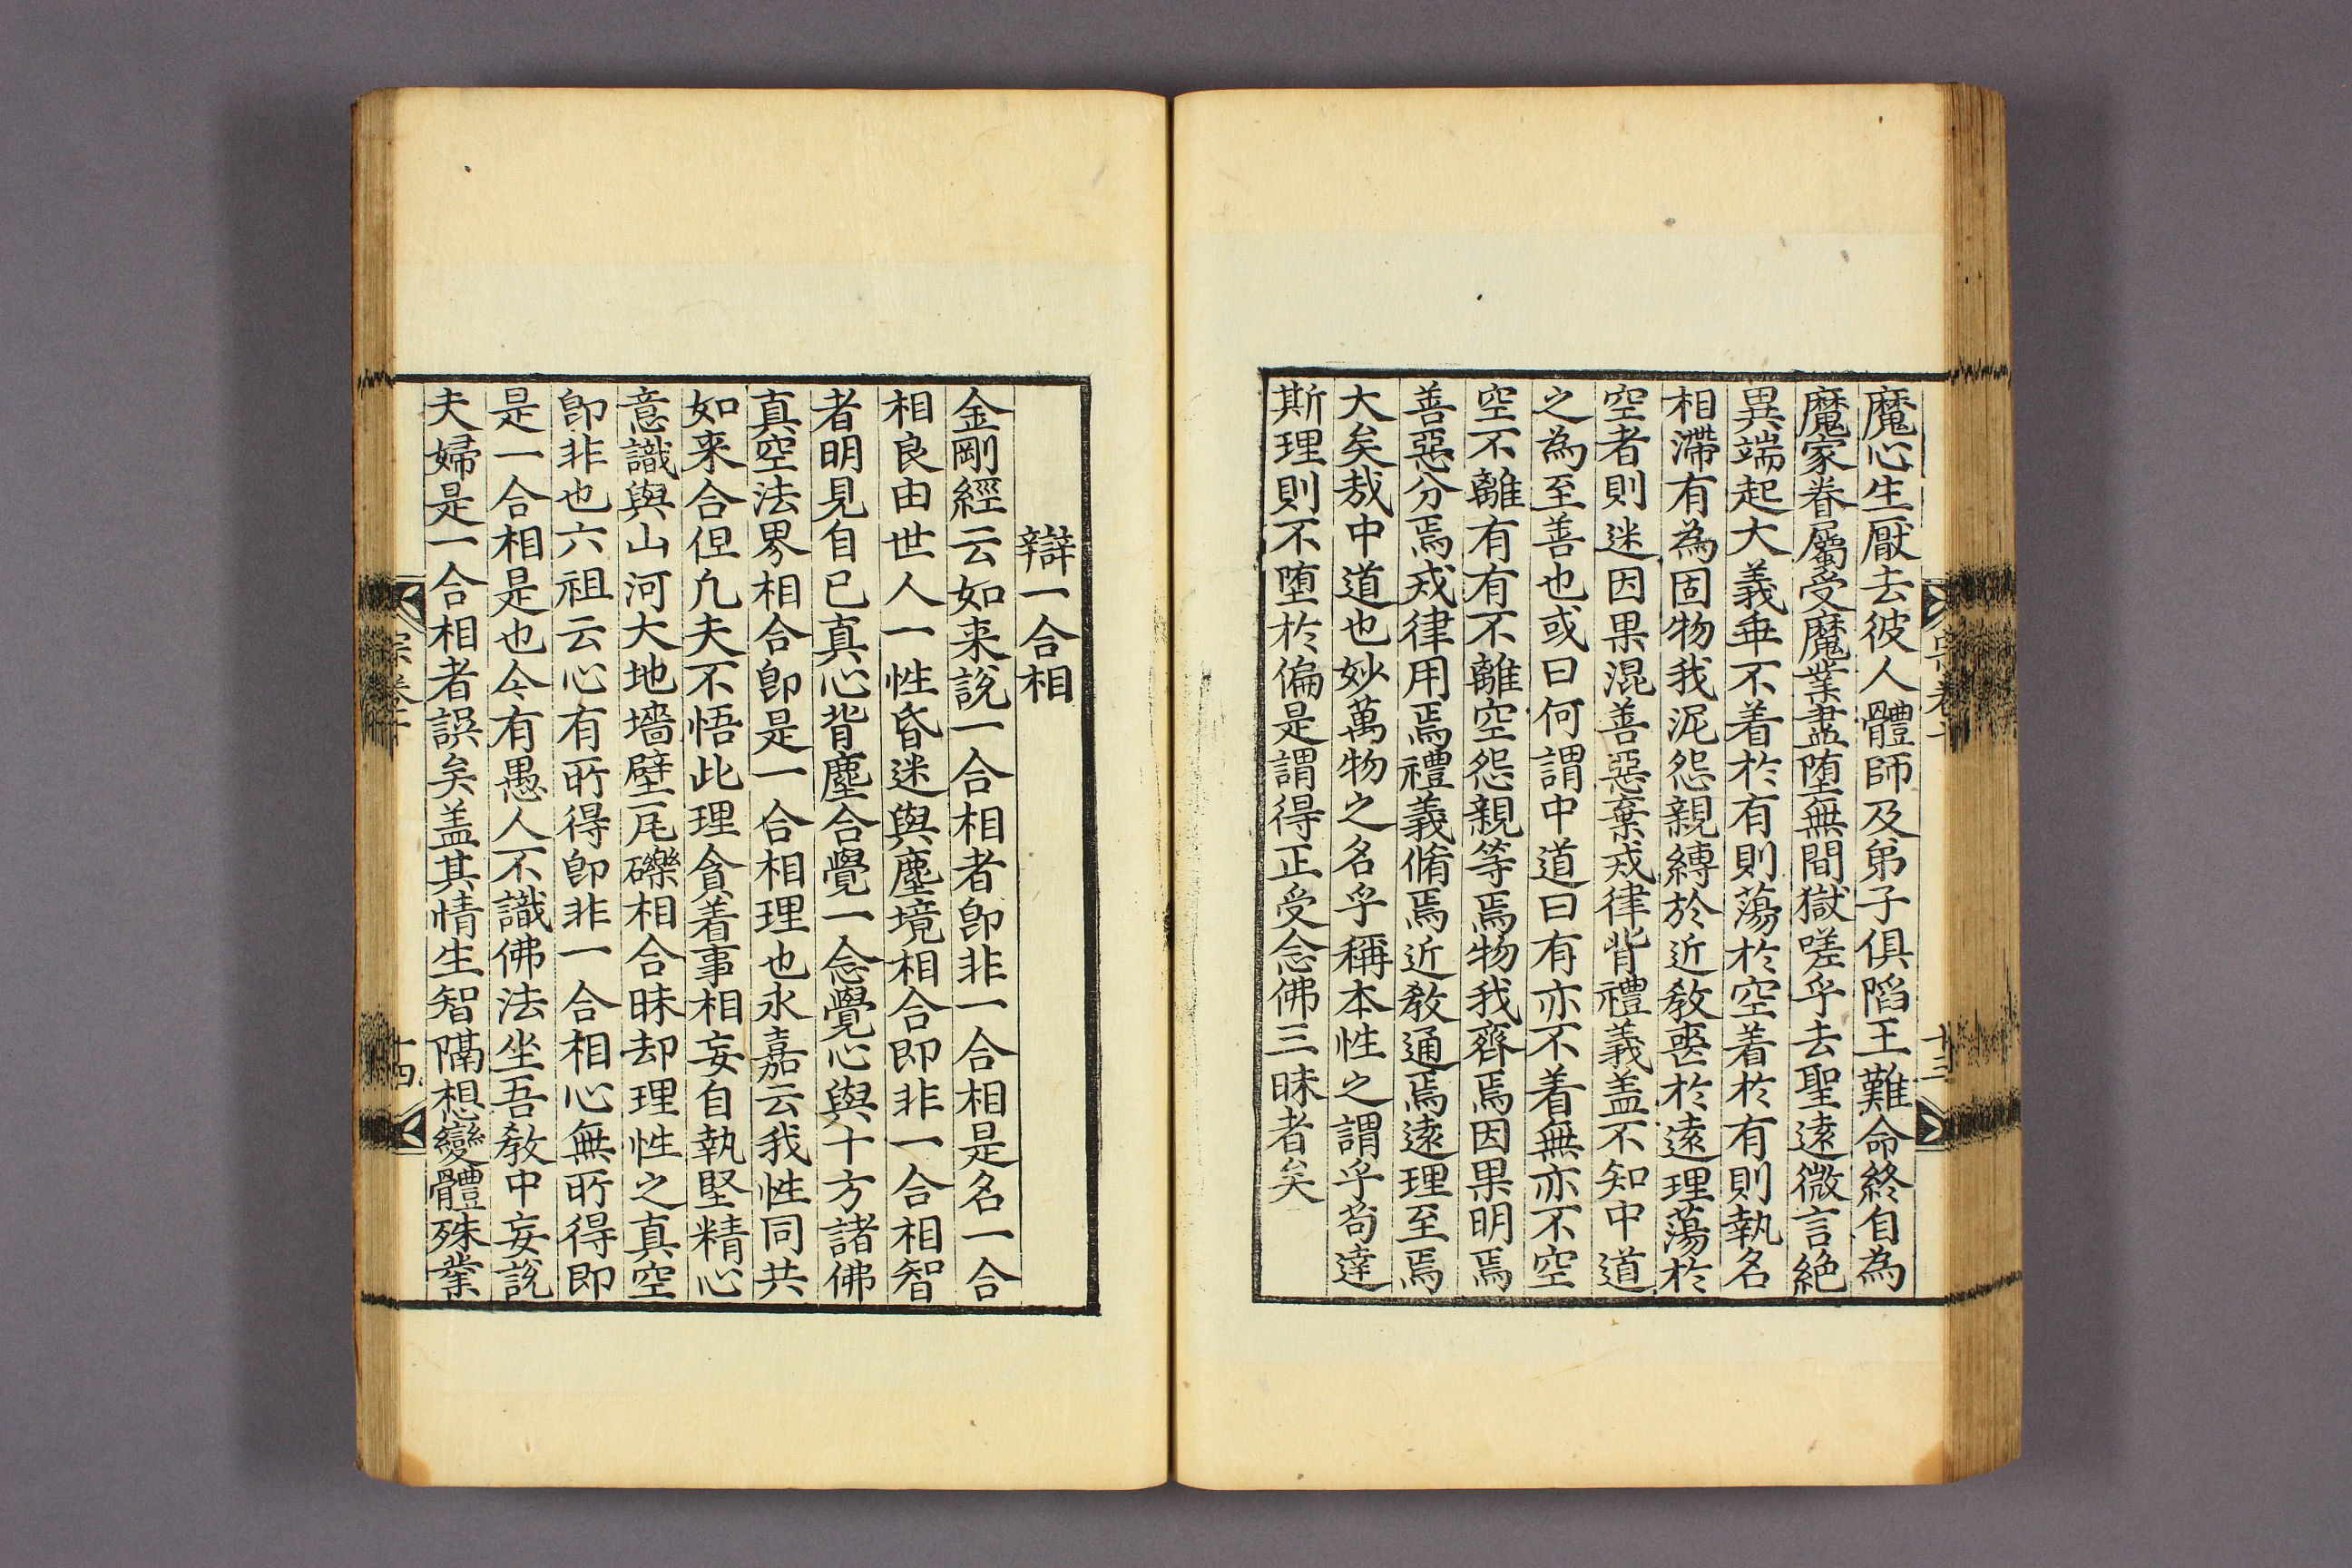 魔心生厭去彼人體師及弟子俱陷王難命終自為
魔家眷屬受魔業盡堕無間獄嗟乎去聖逺微言絶
異端起大義乖不着扵有則蕩扵空着扵有則執名
相滯有為固物我泥怨親縛於近教喪扵逺理蕩扵
空者則迷因果混善惡棄戒律背禮義盖不知中道
之為至善也或曰何謂中道曰有亦不着無亦不空
空不離有有不離空怨親等焉物我齊焉因果明焉
善惡分焉戒律用焉禮義脩焉近教通焉逺理至焉
大矣哉中道也妙萬物之名乎稱本性之謂乎苟達
斯理則不堕扵偏是謂得正受念佛三昧者矣
辯一合相
金剛經云如来說一合相者即非一合相是名一合
相良由世人一性昏迷與塵境相合即非一合相智
者明見自已真心背塵合覺一念覺心與十方諸佛
真空法界相合即是一合相理也永嘉云我性同共
如来合但凢夫不悟此理貪着事相妄自執堅精心
意識與山河大地墻壁瓦礫相合昧却理性之真空
即非也六祖云心有所得即非一合相心無所得即
是一合相是也今有愚人不識佛法坐吾教中妄說
夫婦是一合相者誤矣盖其情生智隔想變體殊業
十三